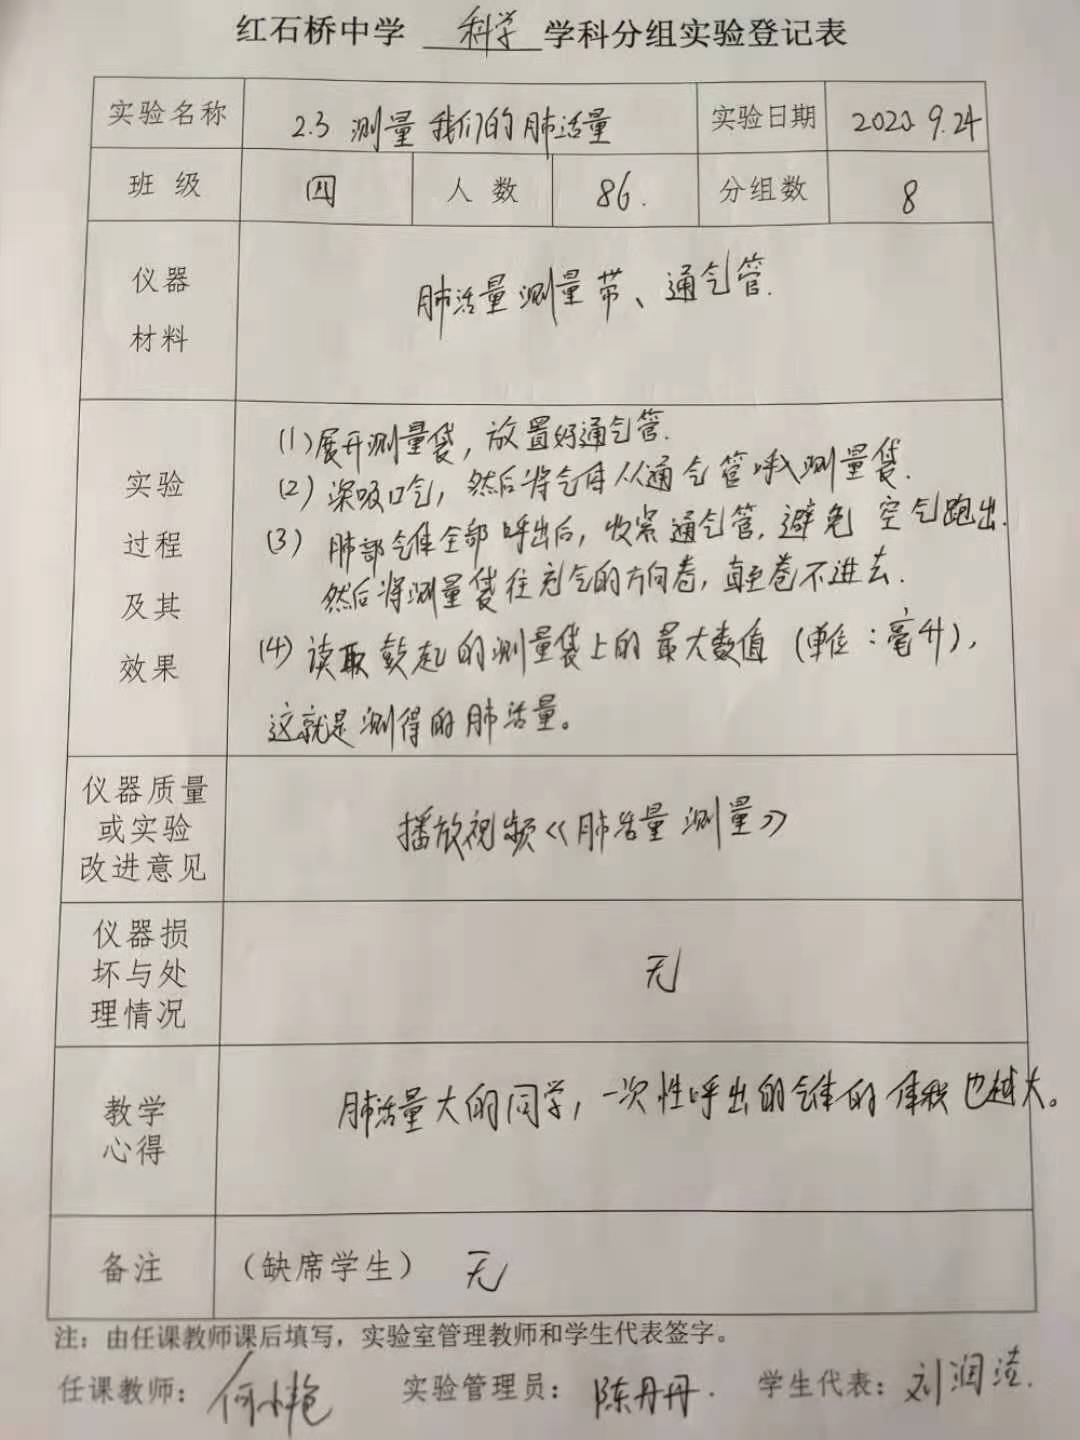 红石桥中学 科学 学科分组实验登记表
实验名称 2.3 测量我们的肺活量 实验日期 2020 9.24
班级 四 人数 86. 分组数 8
仪器
材料
肺活量测量带、通气管.
实验
过程
及其
效果
(1)展开测量袋，放置好通气管.
(2)深吸口气，然后将气体从通气管呼入测量袋.
(3)肺部气体全部呼出后，收紧通气管，避免空气跑出.
然后将测量袋往充气的方向卷，直至卷不进去.
(4)读取鼓起的测量袋上的最大数值（单位：毫升），
这就是测得的肺活量。
仪器质量
或实验
改进意见
播放视频《肺活量测量》
仪器损
坏与处
理情况
无
教学
心得
肺活量大的同学，一次性呼出的气体的体积也越大。
备注 （缺席学生） 无
注：由任课教师课后填写，实验室管理教师和学生代表签字。
任课教师：何小艳 实验管理员：陈丹丹. 学生代表：刘润